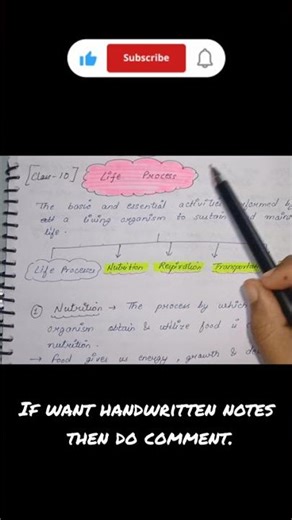 Subscribe
[Class-10] Life Process
The basic and essential activities performed by
a living organism to sustain and
life.
Life Processes Nutrition Respiration
① Nutrition → The process by which
organism obtain & utilize food is
nutrition.
→ Food gives us energy, growth &
IF WANT HANDWRITTEN NOTES
THEN DO COMMENT.